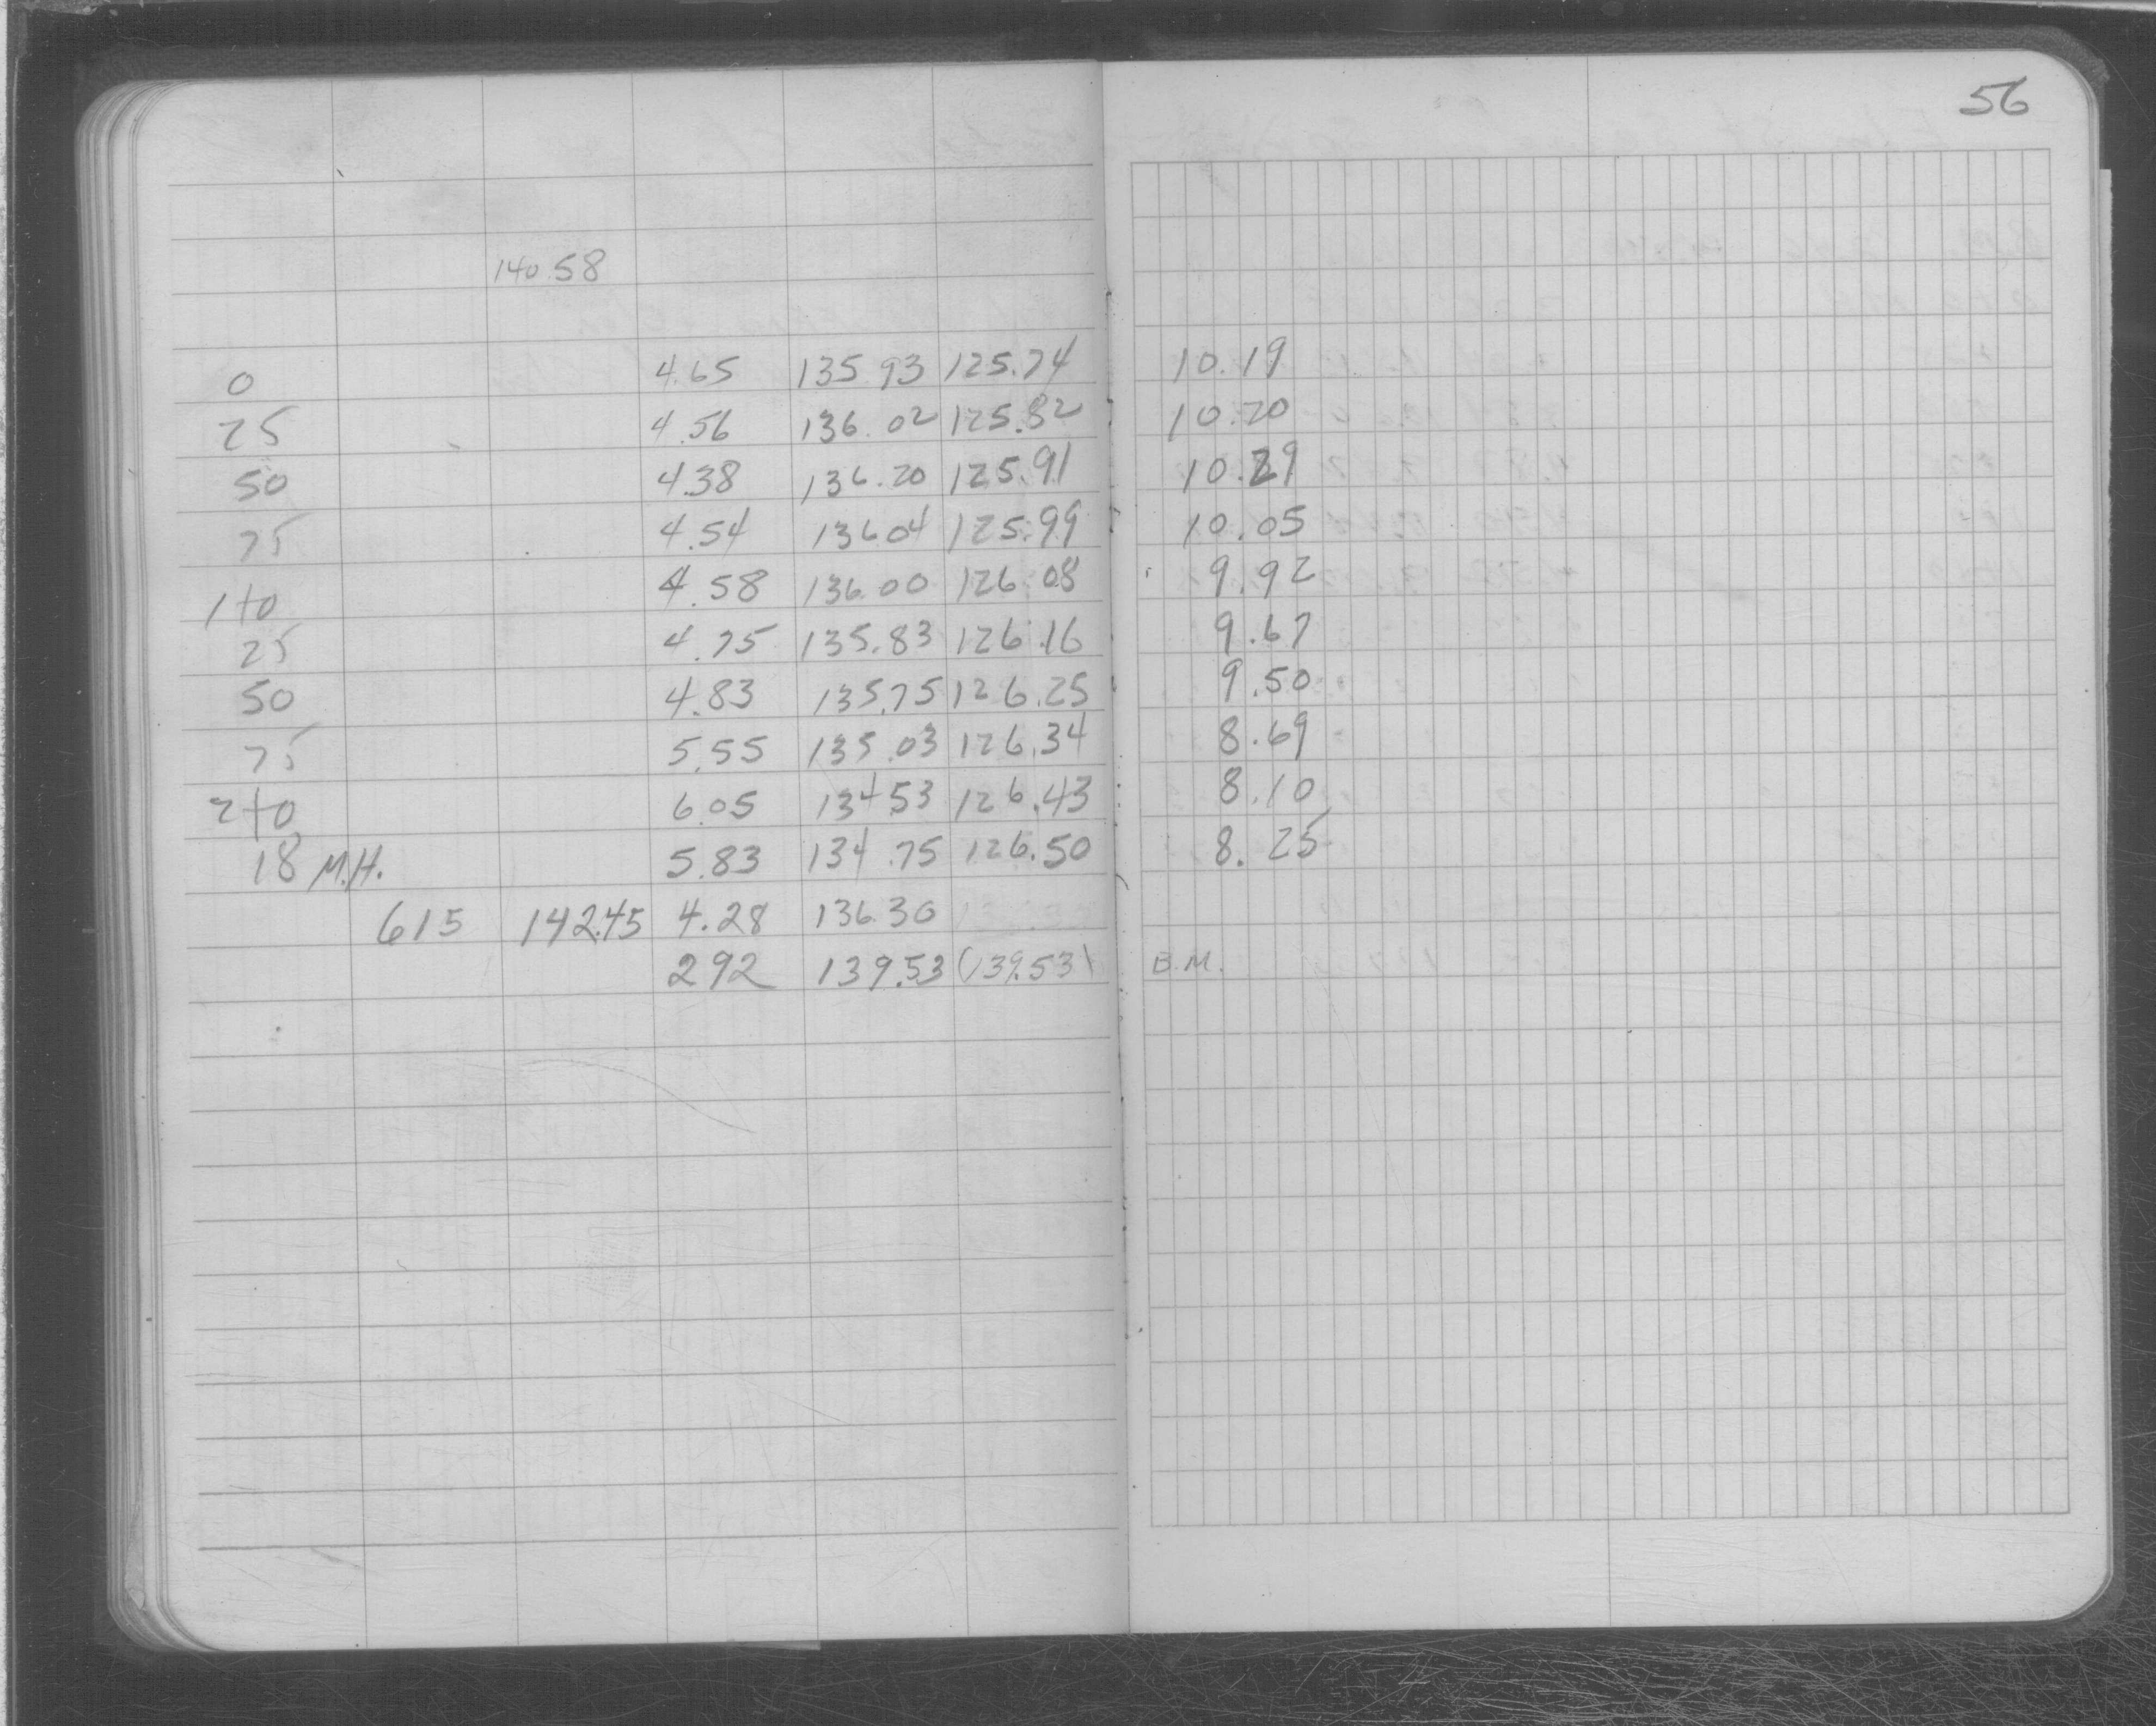 56
140.58
0 4.65 135.93 125.74 10.19
25 4.56 136.02 125.82 10.20
50 4.38 136.20 125.91 10.29
75 4.54 136.04 125.99 10.05
1+0 4.58 136.00 126.08 9.92
25 4.75 135.83 126.16 9.67
50 4.83 135.75 126.25 9.50
75 5.55 135.03 126.34 8.69
2+0 6.05 134.53 126.43 8.10
18 M.H. 5.83 134.75 126.50 8.25
615 142.45 4.28 136.30
292 139.53 (139.53) B.M.